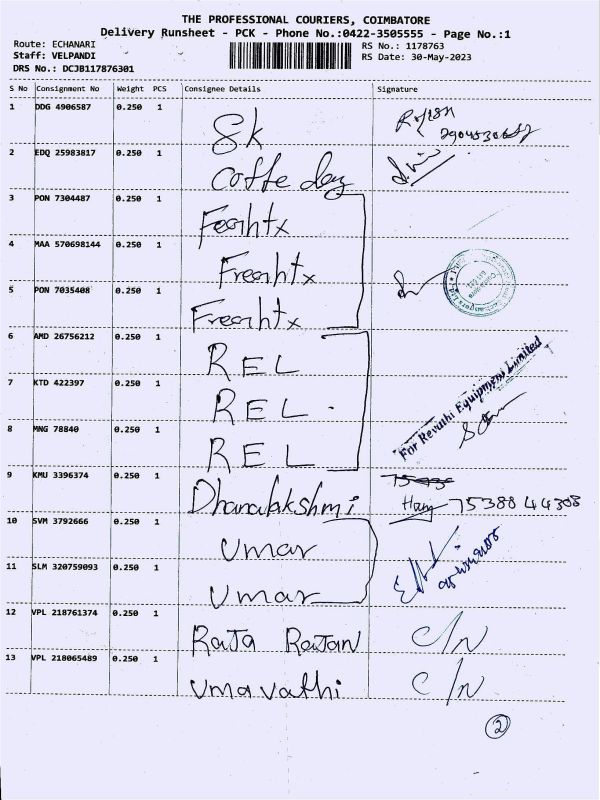 THE PROFESSIONAL COURIERS, COIMBATORE
Delivery Runsheet - PCK - Phone No.:0422-3505555 - Page No.:1
Route: ECHANARI RS No.: 1178763
Staff: VELPANDI RS Date: 30-May-2023
DRS No.: DCJB117876301
S No Consignment No Weight PCS Consignee Details Signature
1 DDG 4906587 0.250 1 Sk
2 EDQ 25983817 0.250 1 Coffe day
3 PON 7304487 0.250 1
4 MAA 570698144 0.250 1
5 PON 7035408 0.250 1
6 AMD 26756212 0.250 1 REL
7 KTD 422397 0.250 1 REL
8 MNG 78840 0.250 1 REL
For Revathi Equipment Limited
9 KMU 3396374 0.250 1 Dhanalakshmi 75388 44308
10 SVM 3792666 0.250 1 Umar
11 SLM 320759093 0.250 1 Umar
12 VPL 218761374 0.250 1 Raja Rajan C/N
13 VPL 218065489 0.250 1 Umavathi C/N
2